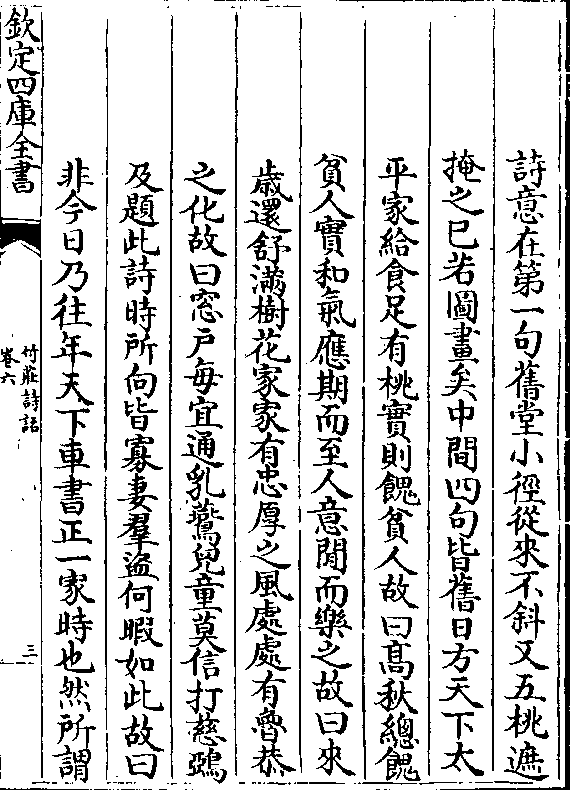 詩意在第一句舊堂小徑從來不斜又五桃遮
掩之已若圖畫矣中間四句皆舊日方天下太
平家給食足有桃實則餽貧人故曰髙秋總餽
貧人實和氣應期而至人意閒而樂之故曰來
歲還舒滿樹花家家有忠厚之風處處有魯恭
之化故曰窓户每宜通乳鷰兒童莫信打慈鵶
及題此詩時所向皆寡妻羣盗何暇如此故曰
非今日乃往年天下車書正一家時也然所謂
欽定四庫全書
竹莊詩話
卷六
三